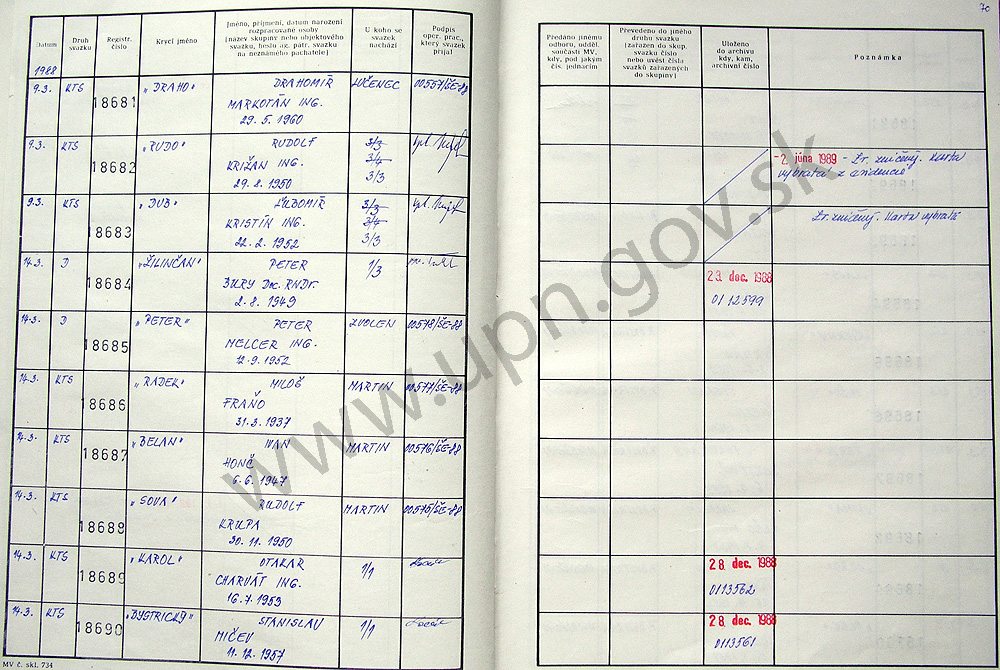 70
Datum
Druh
svazku
Registr.
číslo
Krycí jméno
Jméno, příjmení, datum narození
rozpracované osoby
(název skupiny nebo objektového
svazku, heslo ag. pátr. svazku
na neznámého pachatele)
U koho se
svazek
nachází
Podpis
oper. prac.,
který svazek
přijal
Předáno jinému
odboru, odděl.
součásti MV,
kdy, pod jakým
čís. jednacím
Převedeno do jiného
druhu svazku
(zařazen do skup.
svazku číslo
nebo uvést čísla
svazků zařazených
do skupiny)
Uloženo
do archivu
kdy, kam,
archivní číslo
Poznámka
1988
9.3. KTS 18681 „DRAHO" DRAHOMÍR LUČENEC 00557/ŠE-88
MARKOTÁN ING.
29. 5. 1960
9.3. KTS 18682 „RUDO" RUDOLF 3/3
KRIŽAN ING. 3/4
29. 8. 1950 3/3
- 2. júna 1989 - Zr. zničený. Karta
vybratá z evidencie
9.3. KTS 18683 „DUB" ĽUBOMÍR 3/3
KRISTÍN ING. 3/4
22. 2. 1952 3/3
Zr. zničený. Karta vybratá
14.3. D 18684 „ŽILINČAN" PETER 1/3
BURY Doc. RNDr.
2. 8. 1949
23. dec. 1988
01 12599
14.3. D 18685 „PETER" PETER ZVOLEN 00578/ŠE-88
MELCER ING.
12. 9. 1952
14.3. KTS 18686 „RADEK" MILOŠ MARTIN 00577/ŠE-88
FRAŇO
31. 3. 1937
14.3. KTS 18687 „BELAN" IVAN MARTIN 00576/ŠE-88
HONČ
6. 6. 1947
14.3. KTS 18688 „SOVA" RUDOLF MARTIN 00575/ŠE-88
KRUPA
30. 11. 1950
14.3. KTS 18689 „KAROL" OTAKAR 1/1
CHARVÁT ING.
16. 7. 1953
28. dec. 1988
0113562
14.3. KTS 18690 „BYSTRICKÝ" STANISLAV 1/1
MIČEV
11. 12. 1957
28. dec. 1988
0113561
MV č. skl. 734
www.upn.gov.sk